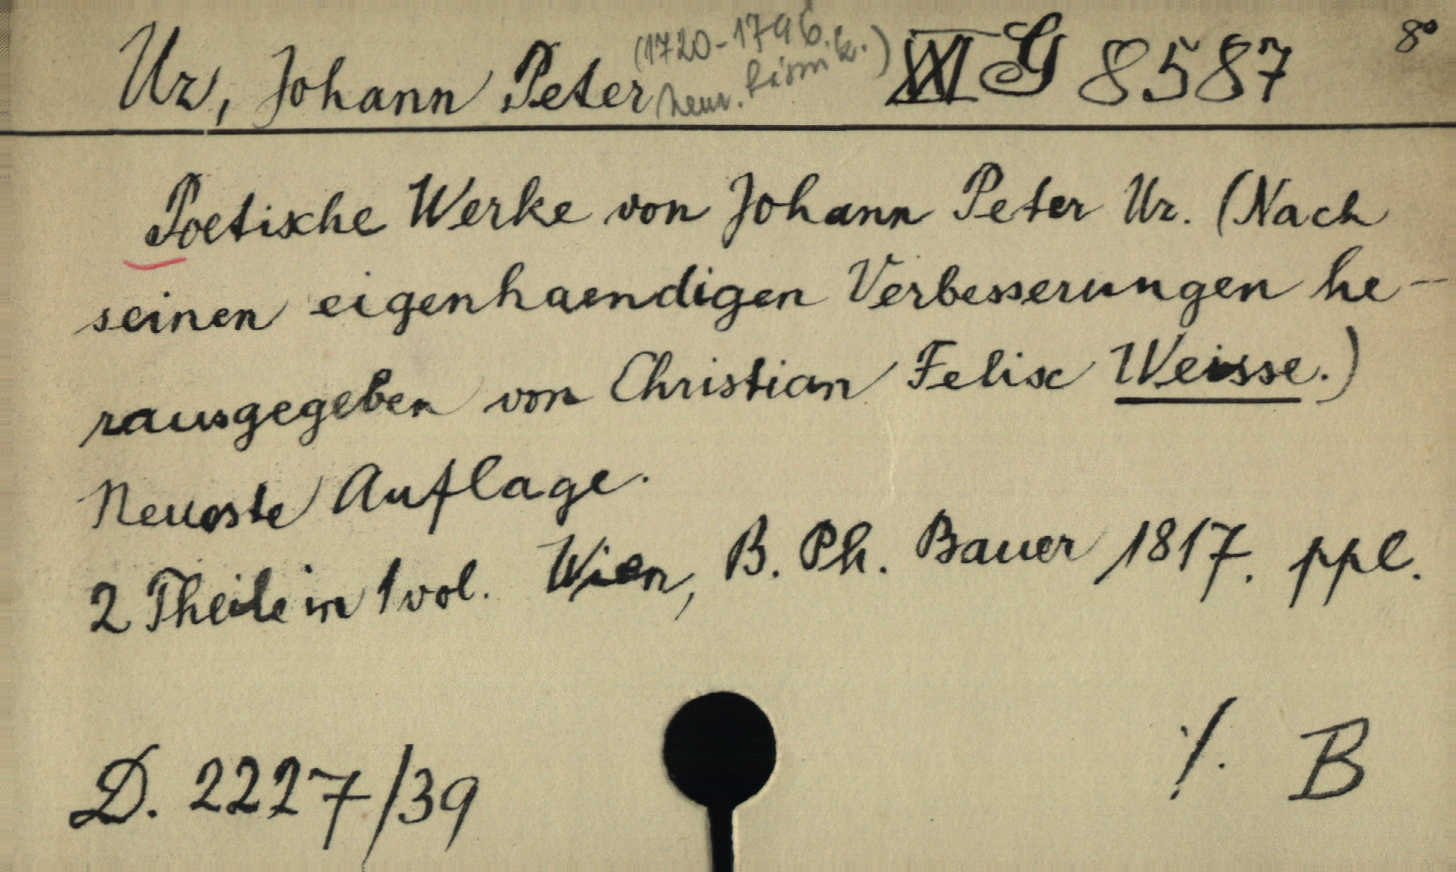 Uz, Johann Peter (1720-1796. k.) G 8587 8°
Poetische Werke von Johann Peter Uz. (Nach
seinen eigenhaendigen Verbesserungen he-
rausgegeben von Christian Felix Weisse.)
Neueste Auflage.
2 Theile in 1 vol. Wien, B. Ph. Bauer 1817. ppl.
D. 2227/39 ·/. B